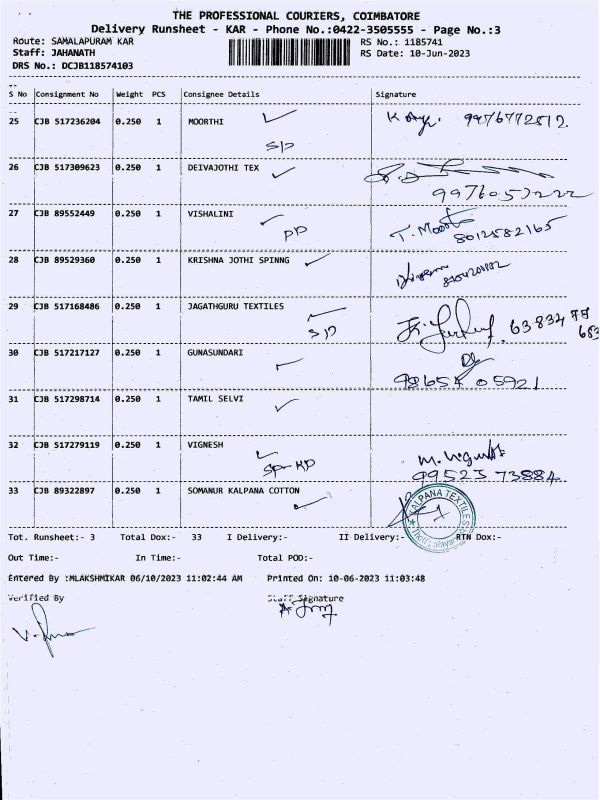 THE PROFESSIONAL COURIERS, COIMBATORE
Delivery Runsheet - KAR - Phone No.:0422-3505555 - Page No.:3
Route: SAMALAPURAM KAR RS No.: 1185741
Staff: JAHANATH RS Date: 10-Jun-2023
DRS No.: DCJB118574103
S No Consignment No Weight PCS Consignee Details Signature
25 CJB 517236204 0.250 1 MOORTHI 9976772512.
S/D
26 CJB 517309623 0.250 1 DEIVAJOTHI TEX
9976057222
27 CJB 89552449 0.250 1 VISHALINI
PD T. 8012582165
28 CJB 89529360 0.250 1 KRISHNA JOTHI SPINNG
29 CJB 517168486 0.250 1 JAGATHGURU TEXTILES
S/D
30 CJB 517217127 0.250 1 GUNASUNDARI
98654 05921
31 CJB 517298714 0.250 1 TAMIL SELVI
32 CJB 517279119 0.250 1 VIGNESH
99523 73884
33 CJB 89322897 0.250 1 SOMANUR KALPANA COTTON
KALPANA TEXTILES
Tot. Runsheet:- 3 Total Dox:- 33 I Delivery:- II Delivery:- RTN Dox:-
Out Time:- In Time:- Total POD:-
Entered By :MLAKSHMIKAR 06/10/2023 11:02:44 AM Printed On: 10-06-2023 11:03:48
Verified By Staff Signature